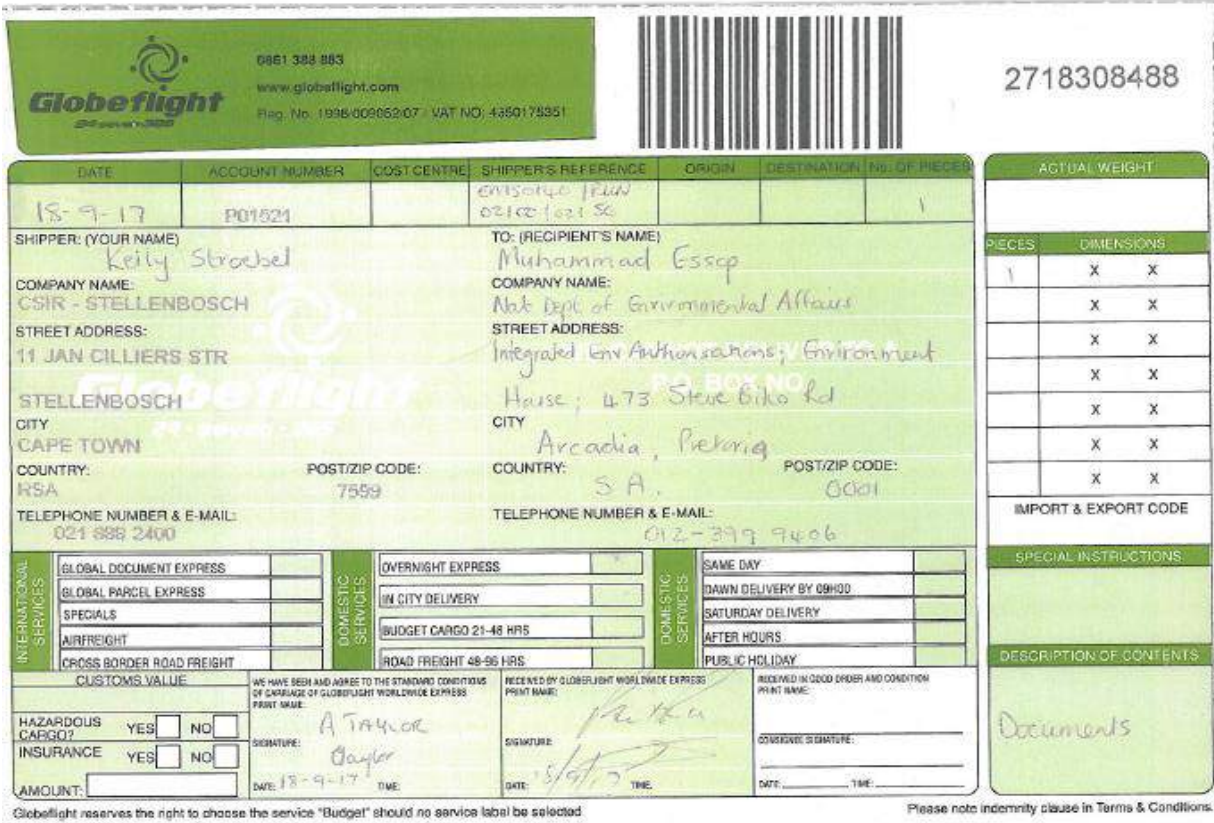 Globeflight
0861 388 883
www.globeflight.com
Reg. No. 1998/009052/07 / VAT NO: 4350175351
2718308488
DATE ACCOUNT NUMBER COST CENTRE SHIPPER'S REFERENCE ORIGIN DESTINATION No. OF PIECES
18-9-17 P01521 1
SHIPPER: (YOUR NAME)
Kelly Stroebel
COMPANY NAME:
CSIR - STELLENBOSCH
STREET ADDRESS:
11 JAN CILLIERS STR
STELLENBOSCH
CITY
CAPE TOWN
COUNTRY: POST/ZIP CODE:
RSA 7599
TELEPHONE NUMBER & E-MAIL:
021 888 2400
TO: (RECIPIENT'S NAME)
Muhammad Essop
COMPANY NAME:
Nat Dept of Environmental Affairs
STREET ADDRESS:
Integrated Env Authorisations; Environment
P.O. BOX NO
House; 473 Steve Biko Rd
CITY
Arcadia, Pretoria
COUNTRY: POST/ZIP CODE:
S A. 0001
TELEPHONE NUMBER & E-MAIL:
012-399 9406
ACTUAL WEIGHT
PIECES DIMENSIONS
1 X X
X X
X X
X X
X X
X X
X X
IMPORT & EXPORT CODE
SPECIAL INSTRUCTIONS
DESCRIPTION OF CONTENTS
Documents
INTERNATIONAL SERVICES
GLOBAL DOCUMENT EXPRESS
GLOBAL PARCEL EXPRESS
SPECIALS
AIRFREIGHT
CROSS BORDER ROAD FREIGHT
DOMESTIC SERVICES
OVERNIGHT EXPRESS
IN CITY DELIVERY
BUDGET CARGO 21-48 HRS
ROAD FREIGHT 48-96 HRS
DOMESTIC SERVICES
SAME DAY
DAWN DELIVERY BY 09H00
SATURDAY DELIVERY
AFTER HOURS
PUBLIC HOLIDAY
CUSTOMS VALUE
HAZARDOUS CARGO? YES NO
INSURANCE YES NO
AMOUNT:
WE HAVE SEEN AND AGREE TO THE STANDARD CONDITIONS
OF CARRIAGE OF GLOBEFLIGHT WORLDWIDE EXPRESS
PRINT NAME:
A TAYLOR
SIGNATURE:
DATE: 18-9-17 TIME:
RECEIVED BY GLOBEFLIGHT WORLDWIDE EXPRESS
PRINT NAME:
SIGNATURE:
DATE: TIME:
RECEIVED IN GOOD ORDER AND CONDITION
PRINT NAME:
CONSIGNEE SIGNATURE:
DATE: TIME:
Globeflight reserves the right to choose the service "Budget" should no service label be selected
Please note indemnity clause in Terms & Conditions.